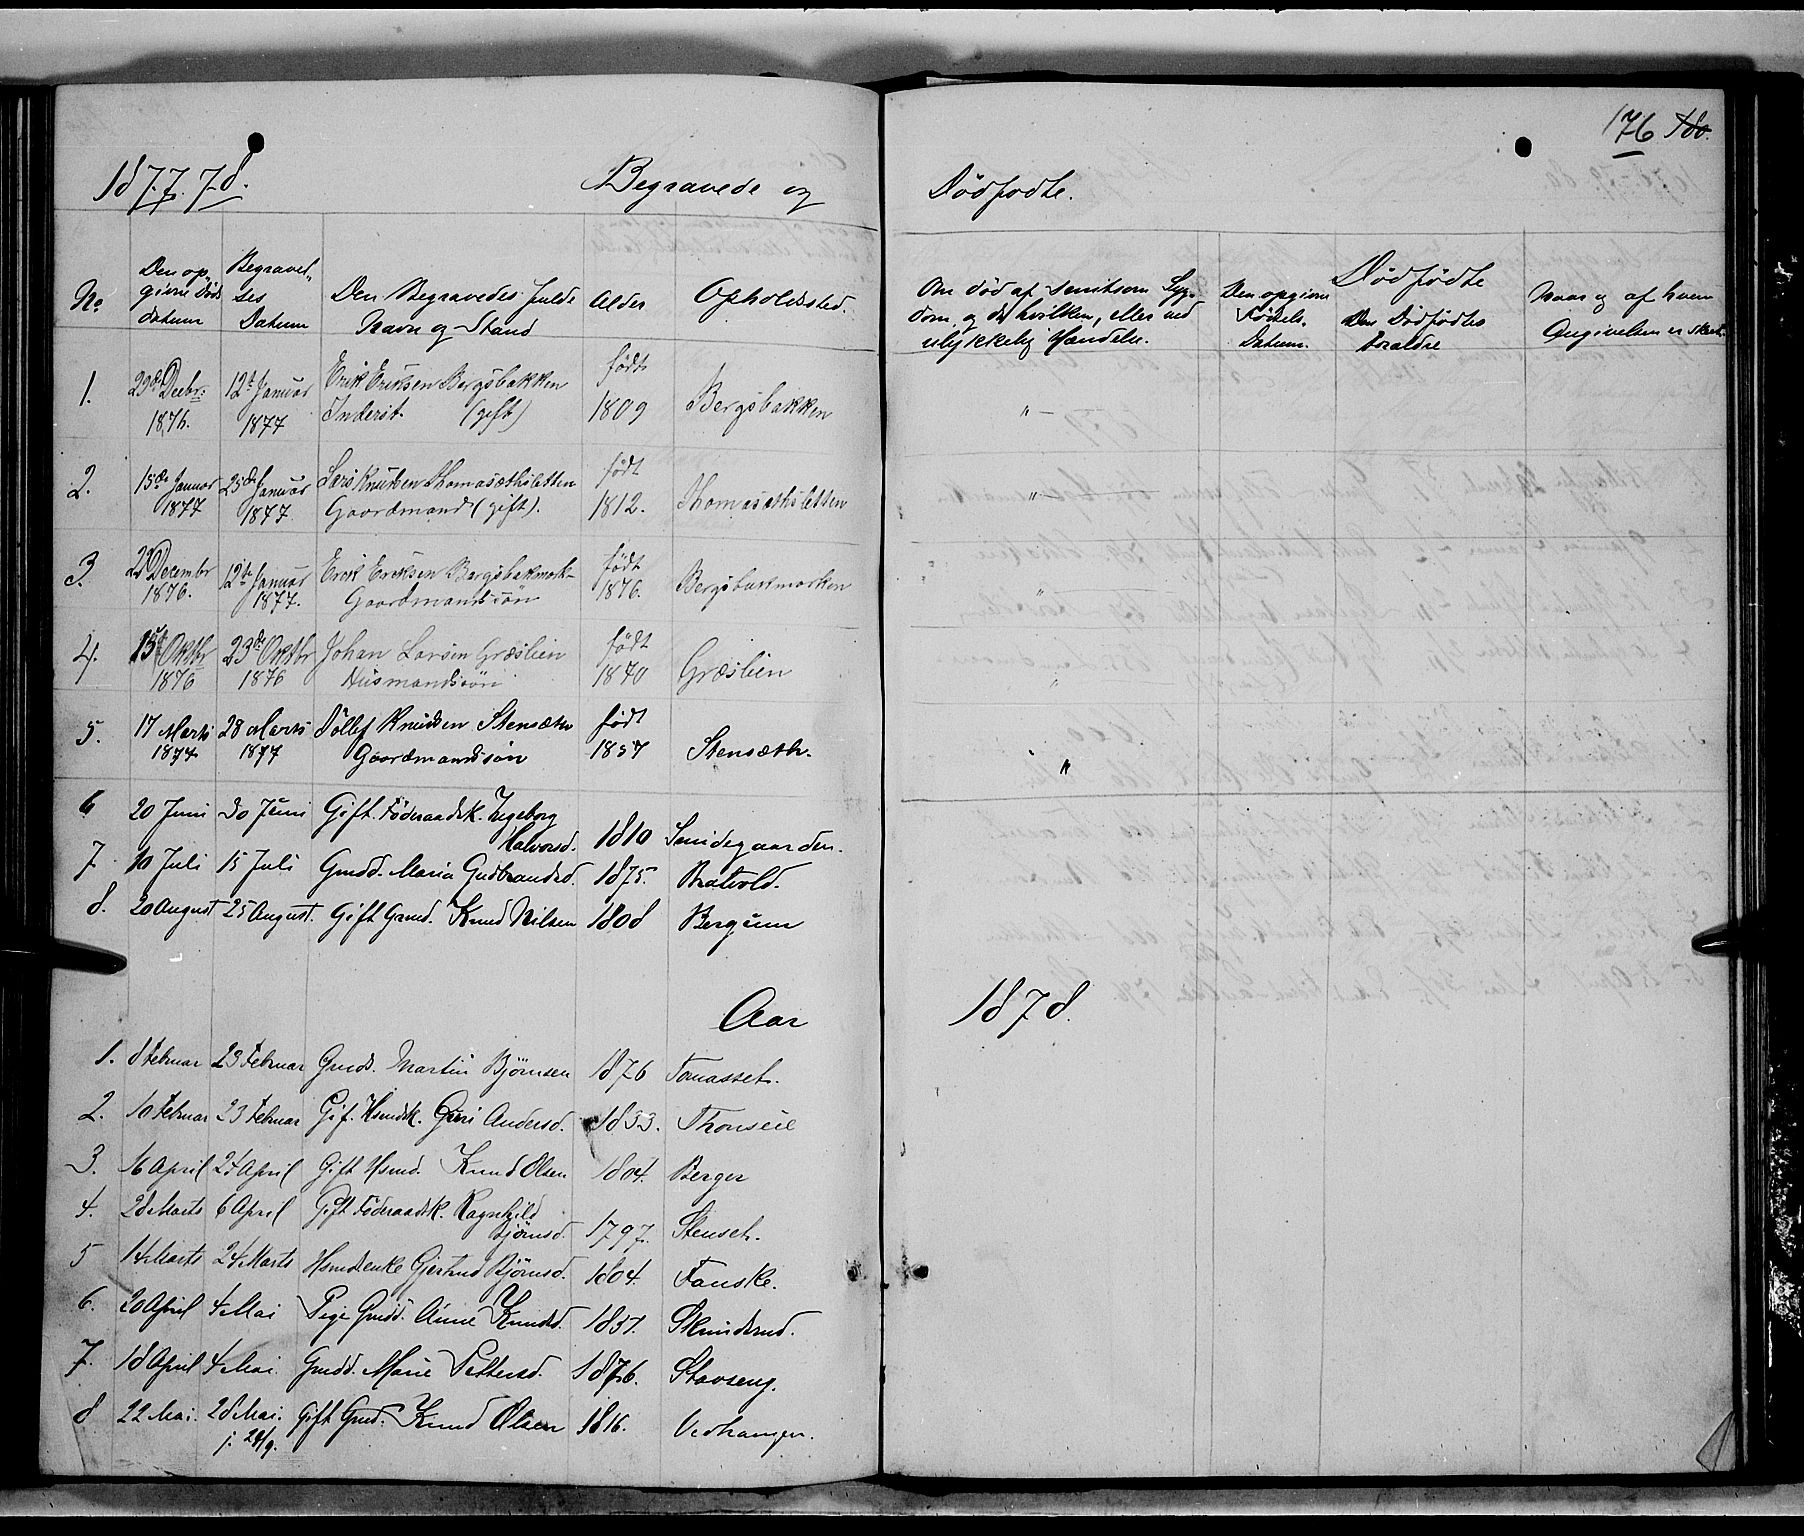 176 180.
1877.78. Begravede og Dødfødte.
No Den opgivne Døds datum Begravelses Datum Den Begravedes fulde Navn og Stand Alder Opholdssted. Om død af smitsom Sygdom, og da hvilken, eller ved ulykkelig Hændelse. Den opgivne Fødsels. Datum. Dødfødte Den Dødfødtes Forældre Naar og af hvem Angivelsen er skeet.
1. 29de Decbr: 12te Januar Erik Eriksen Bergsbakken født
1876. 1877 Inderst. (gift) 1809 Bergsbakken " —
2. 15de Januar 25de Januar Lars Knudsen Thomasæthsletten født
1877 1877. Gaardmand (gift). 1812. Thomasæthsletten "
3. Decembr 12te Januar Erik Eriksen Bergsbakmark- født
1876. 1877. Gaardmandssøn 1876. Bergsbakmarken "
4. 15de Oktbr 23de Oktbr Johan Larsen Græslien født
1876 1876 Husmandssøn 1870 Græslien "
5. 17 Marts 28 Marts Tollef Knudsen Stensæth født
1877 1877 Gaardmandssøn 1857 Stensæth. "
6 20 Juni 30 Juni Gift Föderaadsk. Ingeborg
Halvorsd. 1810 Smidegaarden.
7. 10 Juli 15 Juli Gmdd. Maria Gudbrandsd. 1875. Bratvold.
8. 20 August 25 August. Gift Gmd. Knud Nilsen 1808 Bergum
Aar 1878.
1. 8 Februar 23 Februar Gmds. Martin Bjørnsen 1876 Tomasset.
2. 10 Februar 23 Februar Gif. Hsmdsk. Guri Andersd. 1833.
3. 16 April 27 April Gift Hsmd. Knud Olsen 1804. Berger
4. 28 Marts 6 April Gift Föderaadsk. Ragnhild
Bjørnsd. 1797. Stenset.
5 14 Marts 24 Marts Hsmdenke Gjertrud Bjørnsd. 1804. Fauske.
6. 20 April 4 Mai Pige Gmdd. Anne Knudsd. 1857. Skinderud.
7. 18 April 4 Mai. Gmdd. Marie Pettersd. 1876. Stavseng.
8 22 Mai. 28 Mai. Gift Gmd. Knud Olsen 1816. Vedhaugen.
j. 28/9.